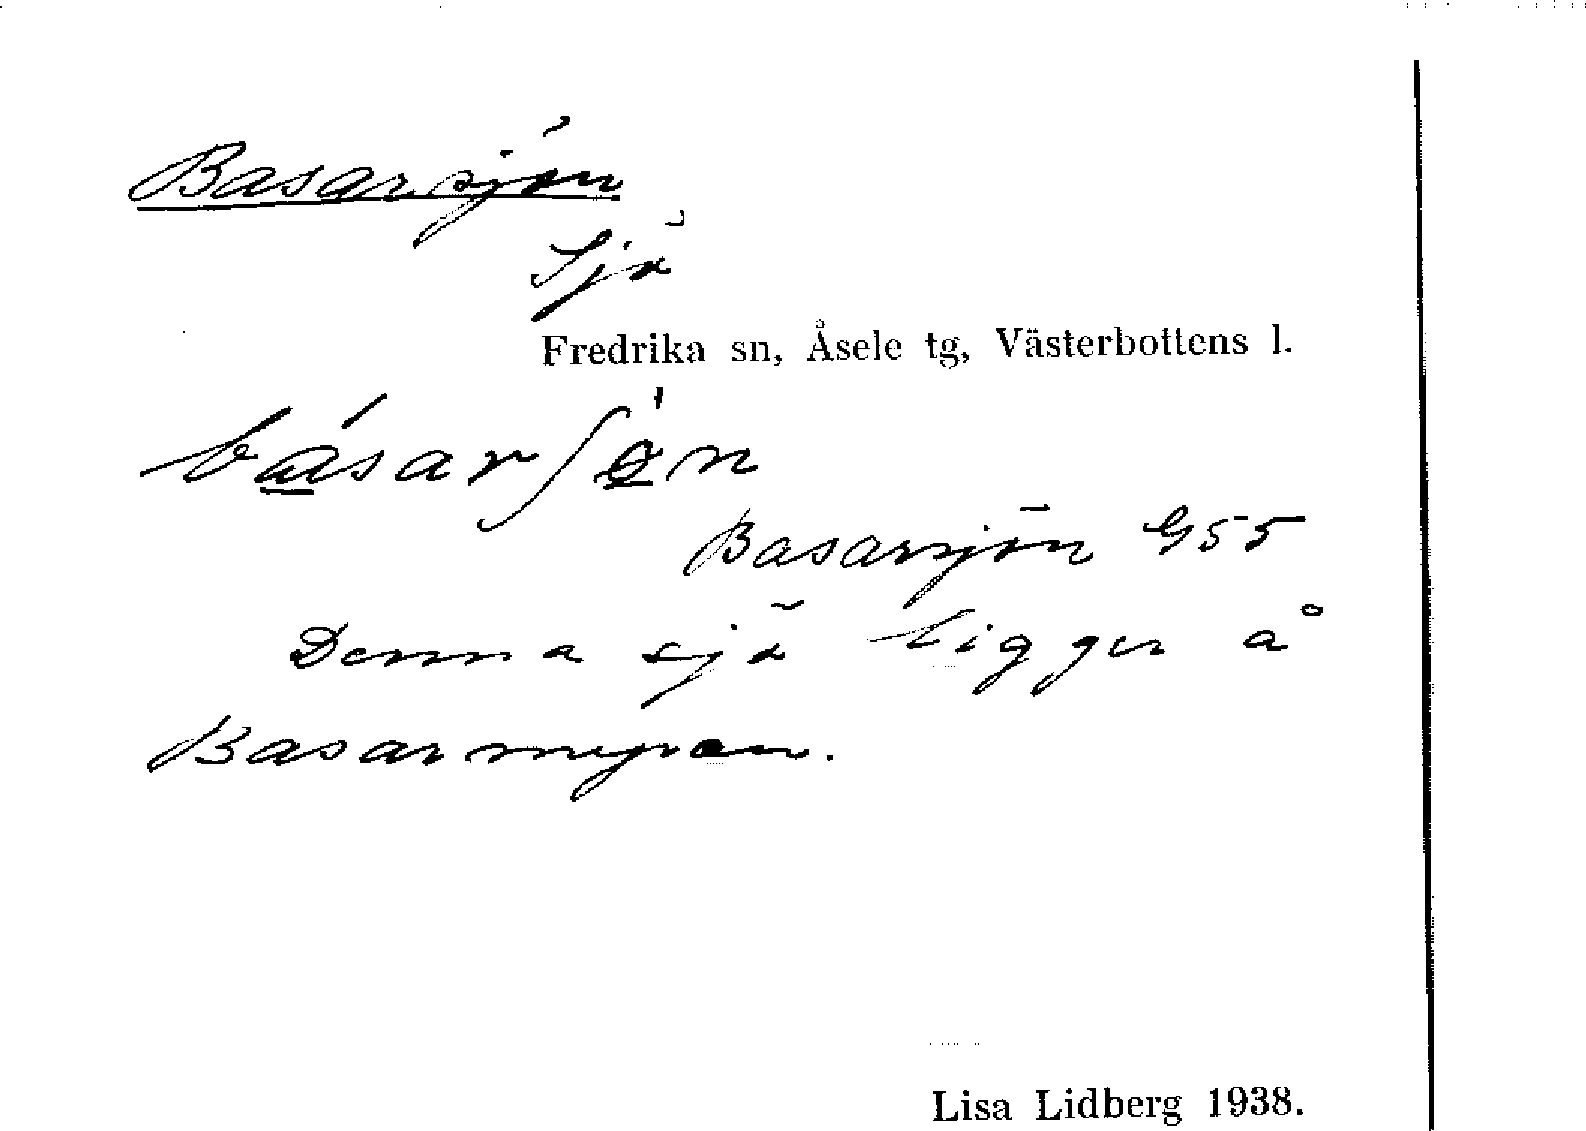 Basarsjön
Sjö
Fredrika sn, Åsele tg, Västerbottens l.
básarʃö́n
Basarsjön G55
Denna sjö ligger å
Basarmyran.
Lisa Lidberg 1938.